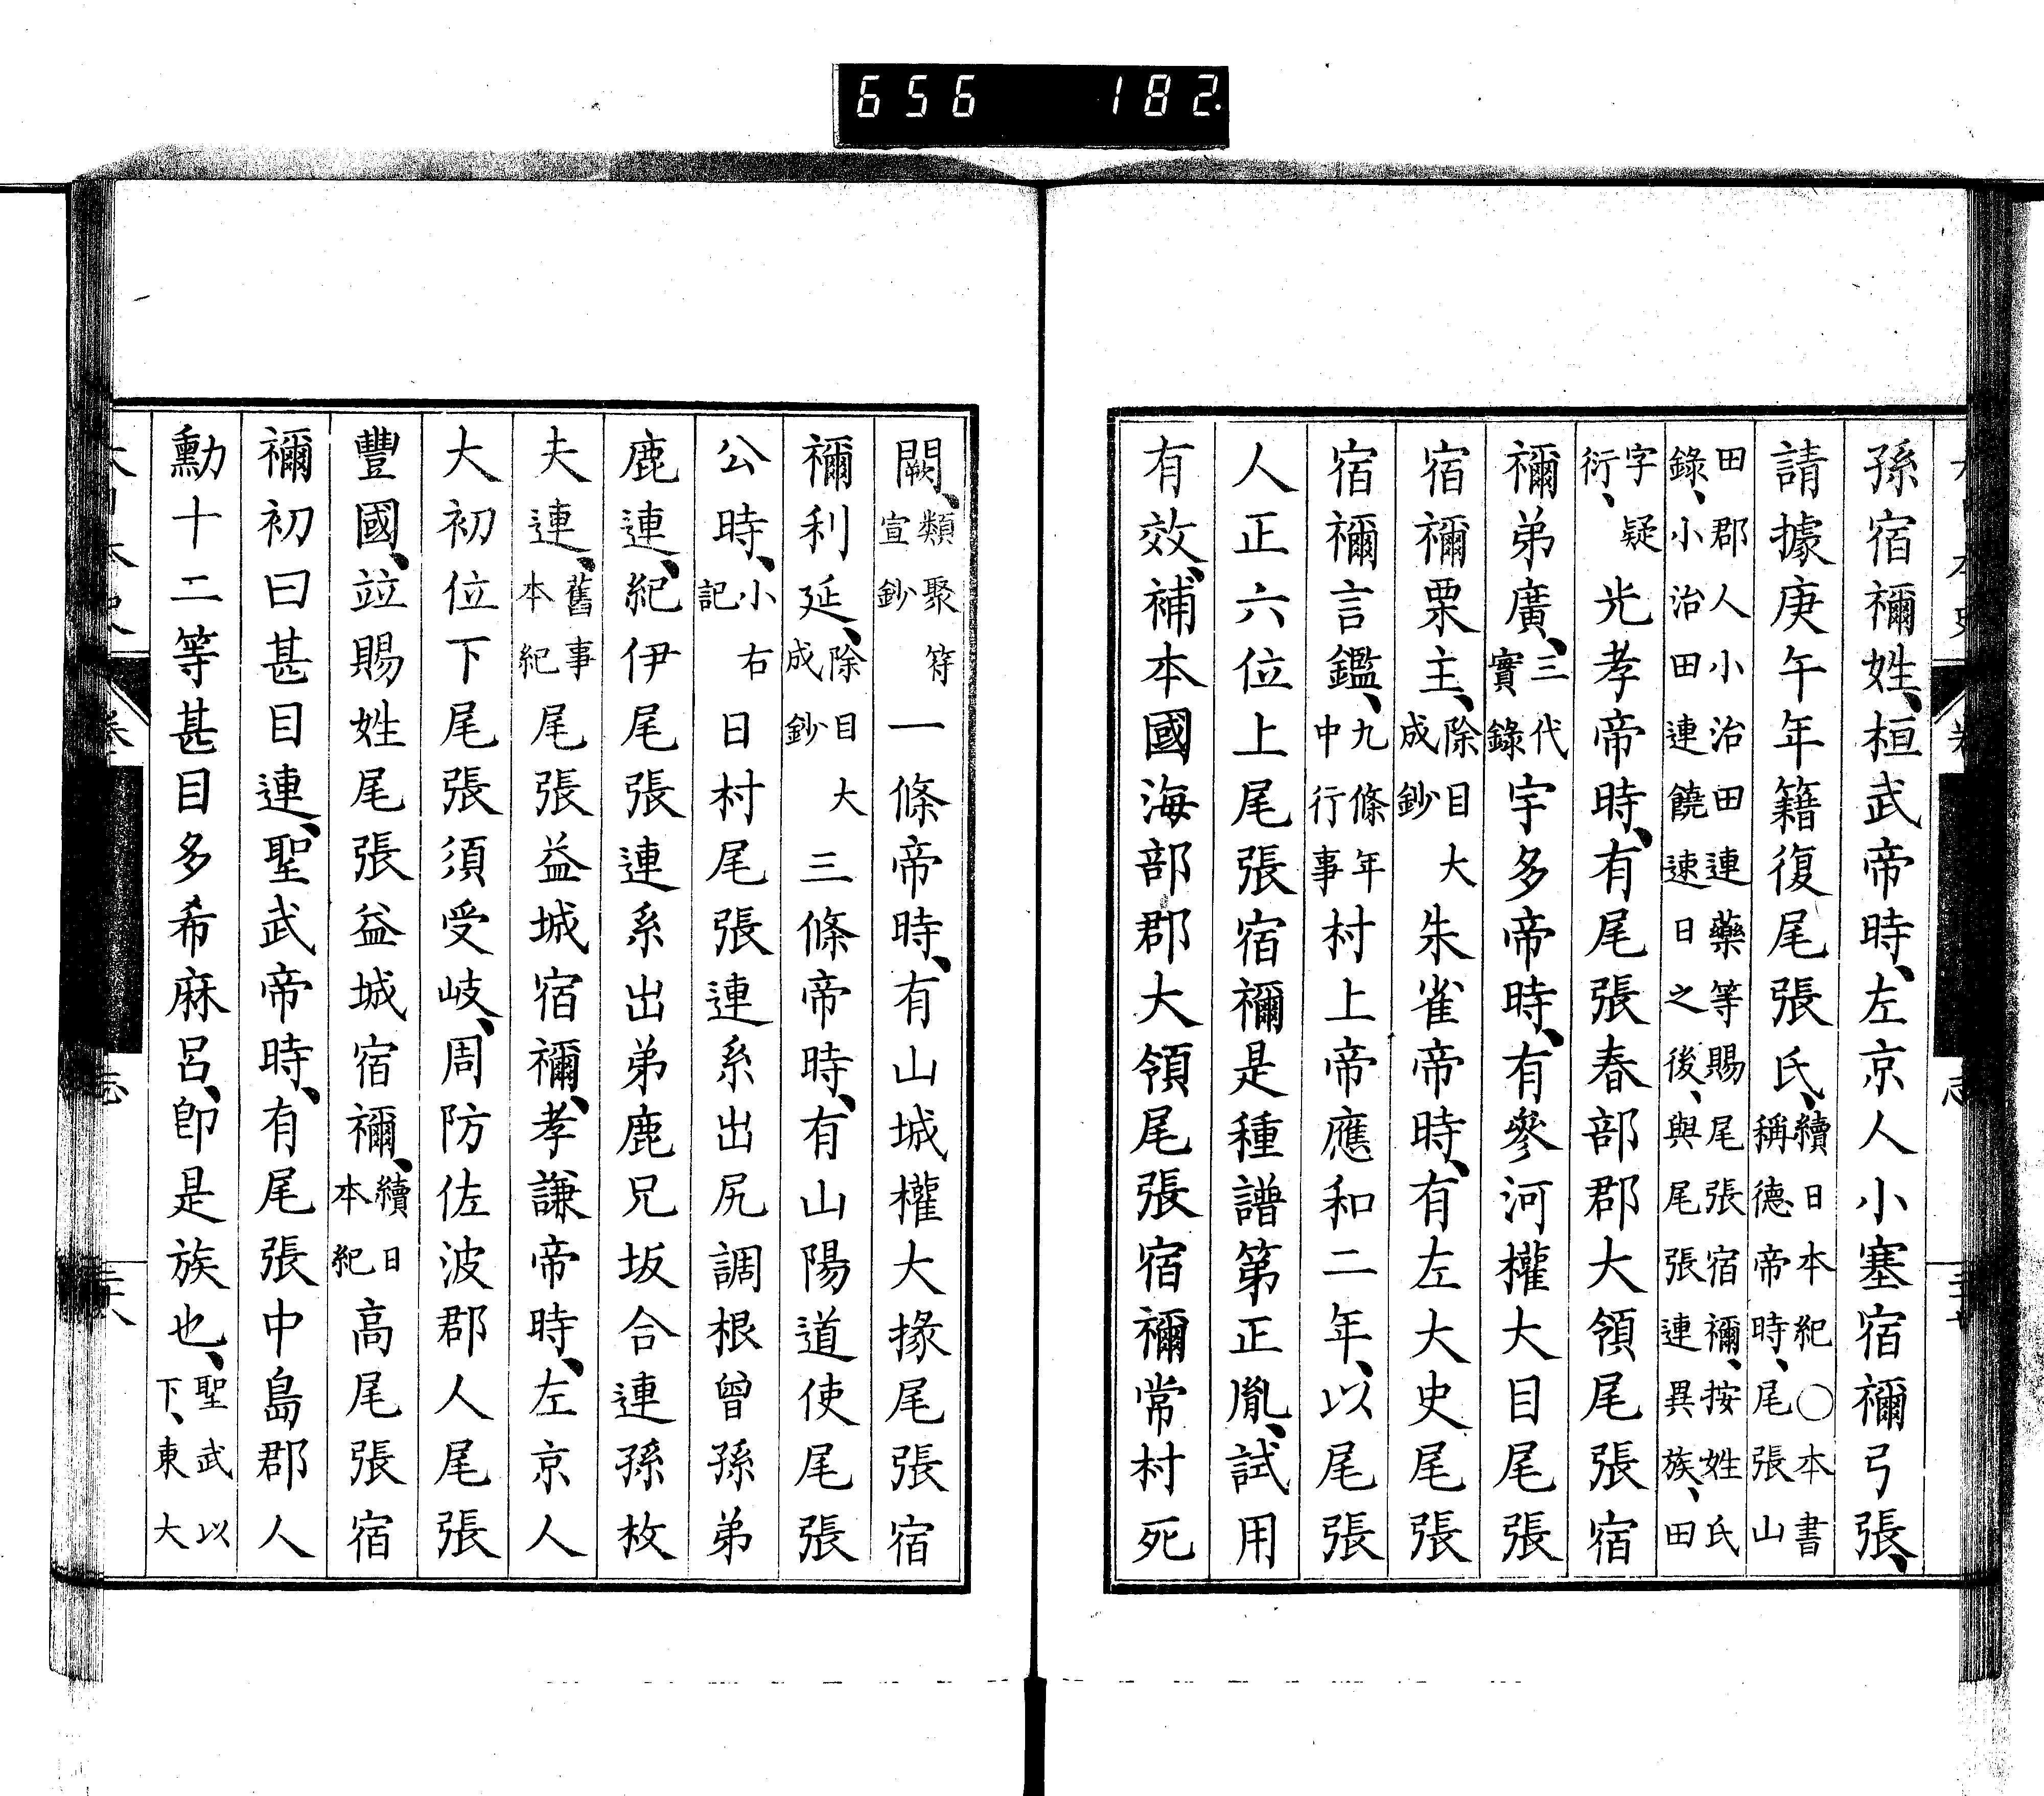 656 182
孫宿禰姓、桓武帝時、左京人小塞宿禰弓張、
請據庚午年籍復尾張氏、續日本紀○本書稱德帝時、尾張山
田郡人小治田連藥等賜尾張宿禰、按姓氏錄、小治田連饒速日之後、與尾張連異族、田
字疑衍、光孝帝時、有尾張春部郡大領尾張宿
禰弟廣、三代實錄宇多帝時、有參河權大目尾張
宿禰粟主、除目大成鈔朱雀帝時、有左大史尾張
宿禰言鑑、九條年中行事村上帝應和二年、以尾張
人正六位上尾張宿禰是種譜第正胤、試用
有效、補本國海部郡大領尾張宿禰常村死
闕、類聚符宣鈔一條帝時、有山城權大掾尾張宿
禰利延、除目大成鈔三條帝時、有山陽道使尾張
公時、小右記日村尾張連系出尻調根曾孫弟
鹿連、紀伊尾張連系出弟鹿兄坂合連孫枚
夫連、舊事本紀尾張益城宿禰、孝謙帝時、左京人
大初位下尾張須受岐、周防佐波郡人尾張
豐國、竝賜姓尾張益城宿禰、續日本紀高尾張宿
禰初曰甚目連、聖武帝時、有尾張中島郡人
勳十二等甚目多希麻呂、卽是族也、聖武以下、東大